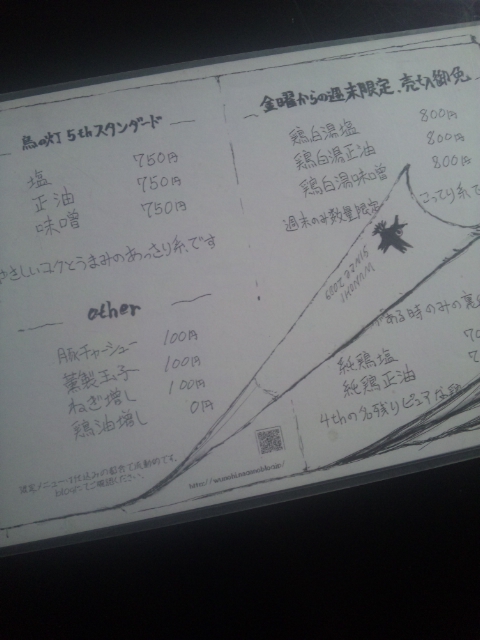 鳥の灯 5thスタンダード
塩 750円
正油 750円
味噌 750円
やさしいコクとうまみのあっさり系です
other
豚チャーシュー 100円
薫製玉子 100円
ねぎ増し 100円
鶏油増し 0円
限定メニューは仕込みの都合で変動的です。
blogにてご確認ください。
金曜からの週末限定、売切御免
鶏白湯塩 800円
鶏白湯正油 800円
鶏白湯味噌 800円
週末のみ数量限定
こってり系で
SINCE 2009
がある時のみの裏
純鶏塩 70
純鶏正油 7
4thの名残りピュアな